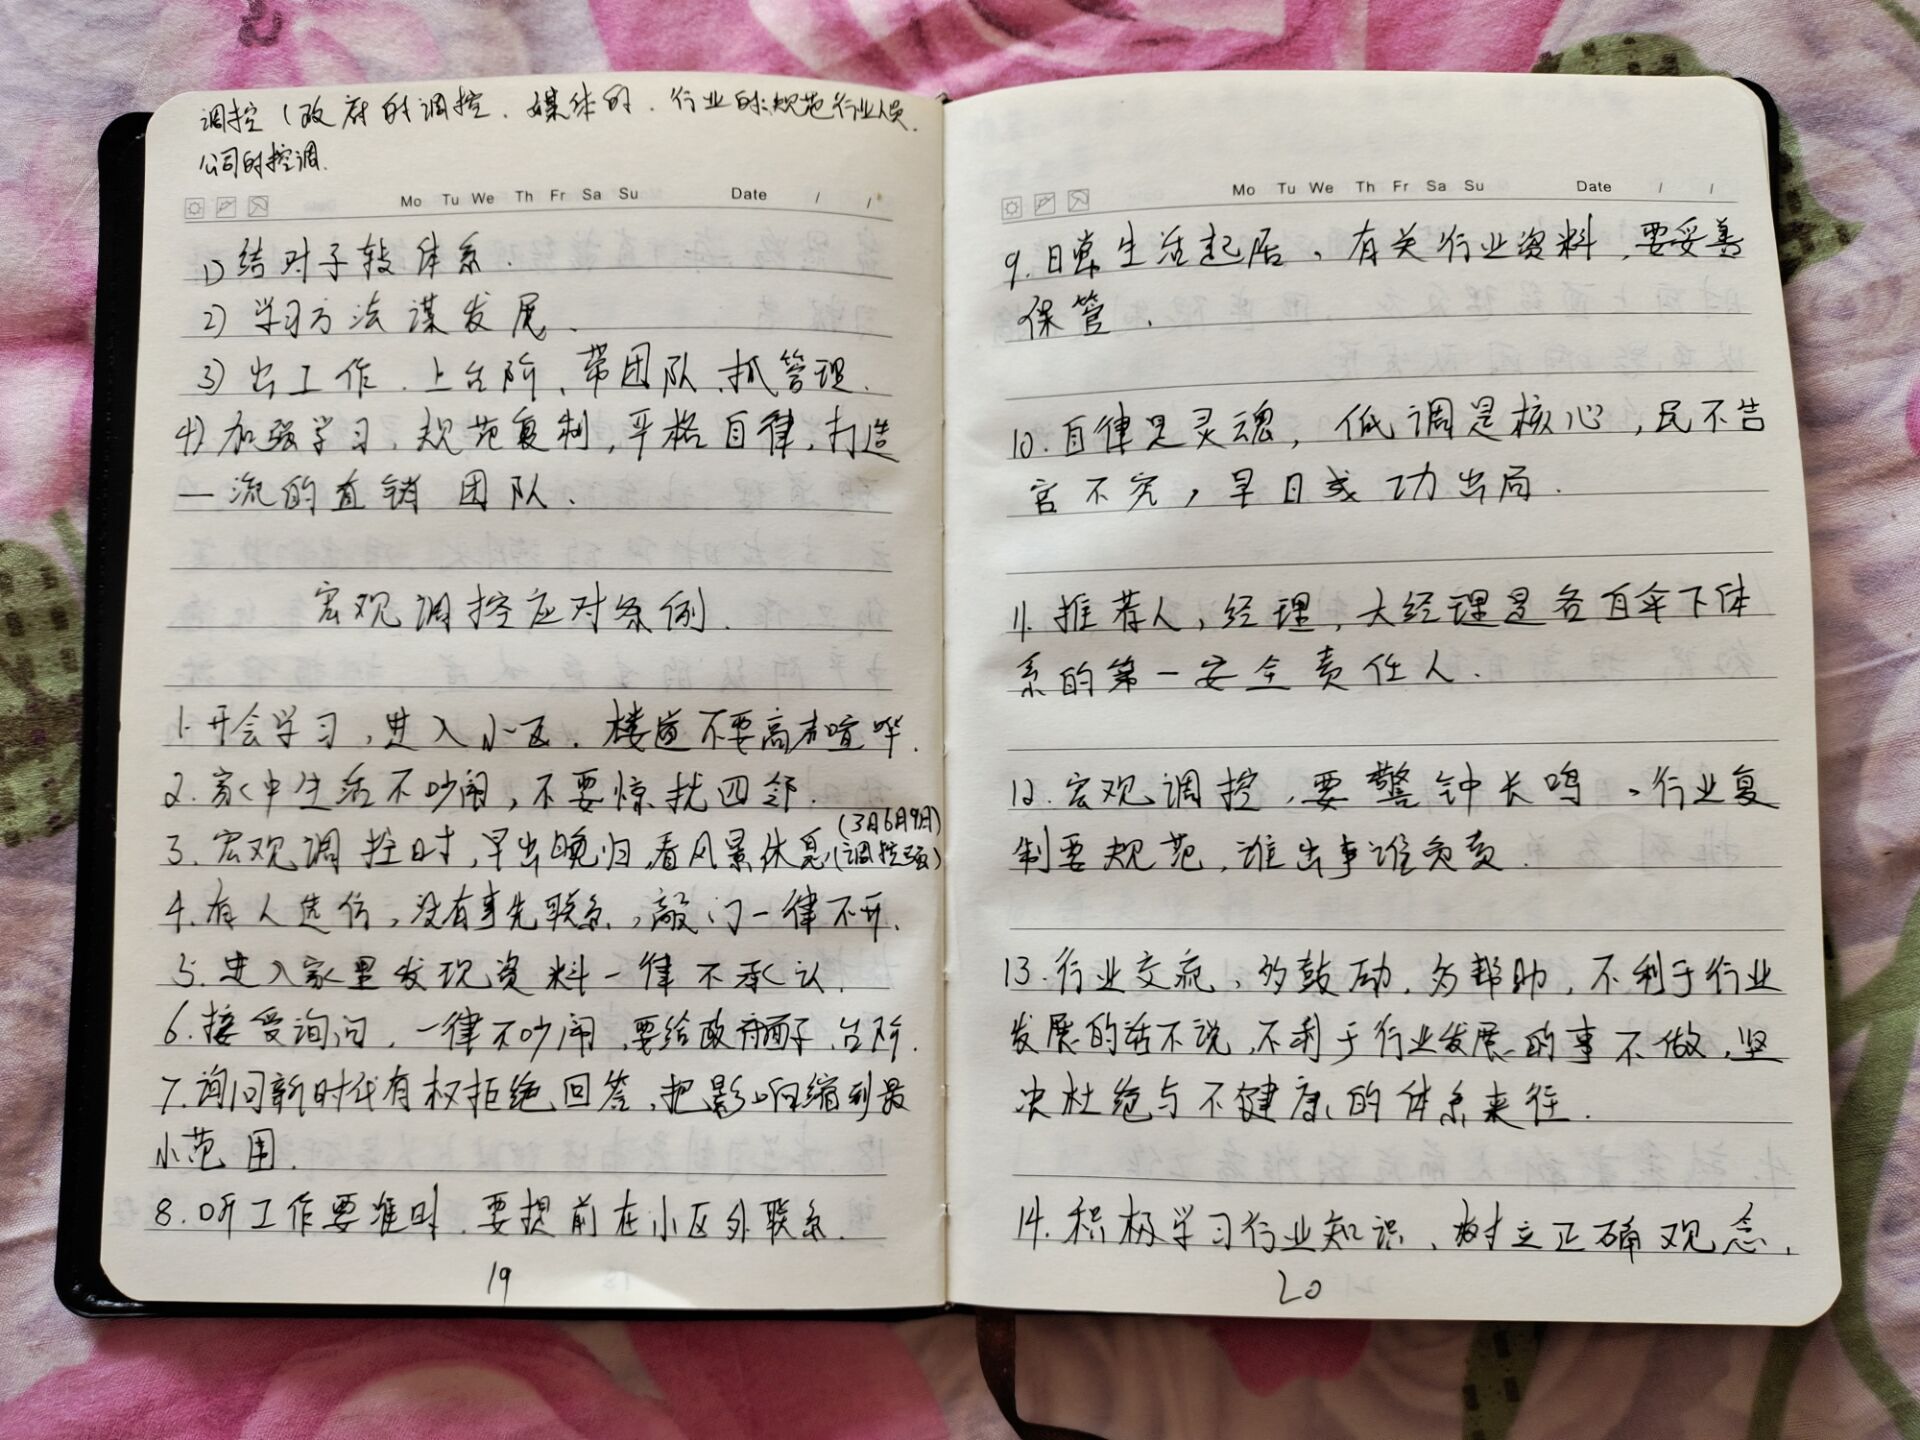 调控(政府的调控、媒体的、行业的:规范行业人员.
公司的控调.
Mo Tu We Th Fr Sa Su Date / /
1) 结对子转体系.
2) 学习方法谋发展.
3) 出工作、上台阶、带团队、抓管理.
4) 加强学习、规范复制,严格自律,打造
一流的直销团队.
宏观调控应对条例.
1. 开会学习,进入小区、楼道不要高声喧哗.
2. 家中生活不吵闹,不要惊扰四邻.
(3月6月9月)
3. 宏观调控时,早出晚归,看风景休息(调控强)
4. 有人造访,没有事先联系,敲门一律不开.
5. 进入家里发现资料一律不承认.
6. 接受询问,一律不吵闹,要给政府面子、台阶.
7. 询问新时代有权拒绝回答,把影响缩到最
小范围.
8. 听工作要准时、要提前在小区外联系.
19
Mo Tu We Th Fr Sa Su Date / /
9. 日常生活起居、有关行业资料,要妥善
保管.
10. 自律是灵魂,低调是核心,民不告
官不究,早日成功出局.
11. 推荐人,经理,大经理是各自伞下体
系的第一安全责任人.
12. 宏观调控,要警钟长鸣、行业复
制要规范,谁出事谁负责.
13. 行业交流、多鼓励,多帮助,不利于行业
发展的话不说,不利于行业发展的事不做,坚
决杜绝与不健康的体系来往.
14. 积极学习行业知识、树立正确观念,
20